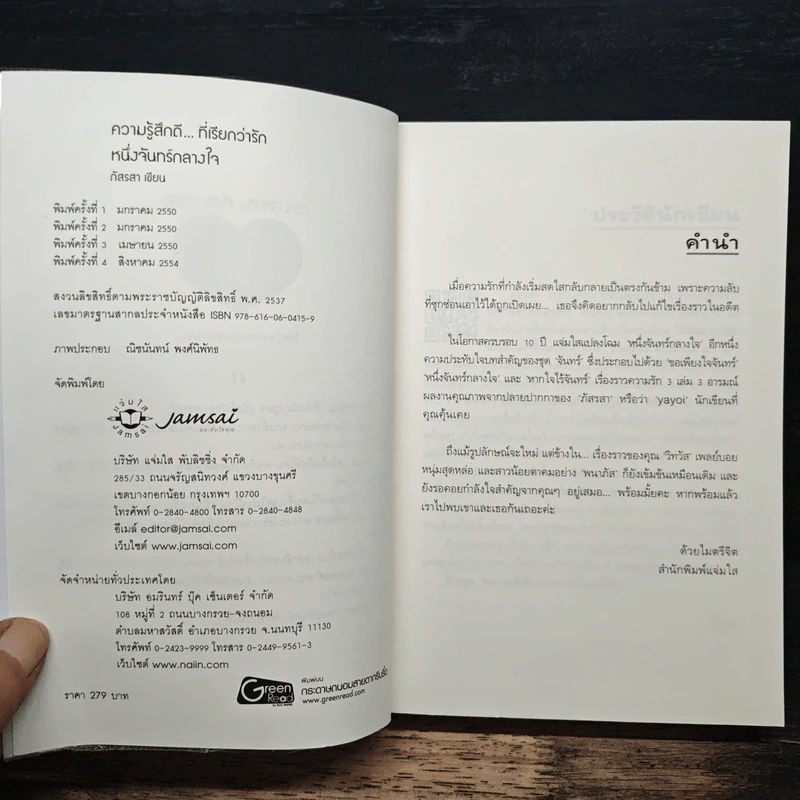 ความรู้สึกดี... ที่เรียกว่ารัก
หนึ่งจันทร์กลางใจ
ภัสรสา เขียน
พิมพ์ครั้งที่ 1 มกราคม 2550
พิมพ์ครั้งที่ 2 มกราคม 2550
พิมพ์ครั้งที่ 3 เมษายน 2550
พิมพ์ครั้งที่ 4 สิงหาคม 2554
สงวนลิขสิทธิ์ตามพระราชบัญญัติลิขสิทธิ์ พ.ศ. 2537
เลขมาตรฐานสากลประจำหนังสือ ISBN 978-616-06-0415-9
ภาพประกอบ ณิชนันทน์ พงศ์นิพัทธ
จัดพิมพ์โดย
แจ่มใส
Jamsai
Jamsai
บริษัท แจ่มใส พับลิชชิ่ง จำกัด
285/33 ถนนจรัญสนิทวงศ์ แขวงบางขุนศรี
เขตบางกอกน้อย กรุงเทพฯ 10700
โทรศัพท์ 0-2840-4800 โทรสาร 0-2840-4848
อีเมล์ editor@jamsai.com
เว็บไซต์ www.jamsai.com
จัดจำหน่ายทั่วประเทศโดย
บริษัท อมรินทร์ บุ๊ค เซ็นเตอร์ จำกัด
108 หมู่ที่ 2 ถนนบางกรวย-จงถนอม
ตำบลมหาสวัสดิ์ อำเภอบางกรวย จ.นนทบุรี 11130
โทรศัพท์ 0-2423-9999 โทรสาร 0-2449-9561-3
เว็บไซต์ www.naiin.com
ราคา 279 บาท
Green Read
พิมพ์บน
กระดาษถนอมสายตากรีนรี้ด
www.greenread.com
คำนำ
เมื่อความรักที่กำลังเริ่มสดใสกลับกลายเป็นตรงกันข้าม เพราะความลับ
ที่ซุกซ่อนเอาไว้ได้ถูกเปิดเผย... เธอจึงคิดอยากกลับไปแก้ไขเรื่องราวในอดีต
ในโอกาสครบรอบ 10 ปี แจ่มใสแปลงโฉม 'หนึ่งจันทร์กลางใจ' อีกหนึ่ง
ความประทับใจบทสำคัญของชุด 'จันทร์' ซึ่งประกอบไปด้วย 'ขอเพียงใจจันทร์'
'หนึ่งจันทร์กลางใจ' และ 'หากใจไร้จันทร์' เรื่องราวความรัก 3 เล่ม 3 อารมณ์
ผลงานคุณภาพจากปลายปากกาของ 'ภัสรสา' หรือว่า 'yayoi' นักเขียนที่
คุณคุ้นเคย
ถึงแม้รูปลักษณ์จะใหม่ แต่ข้างใน... เรื่องราวของคุณ 'วิทวัส' เพลย์บอย
หนุ่มสุดหล่อ และสาวน้อยตาคมอย่าง 'พนาภัส' ก็ยังเข้มข้นเหมือนเดิม และ
ยังรอคอยกำลังใจสำคัญจากคุณๆ อยู่เสมอ... พร้อมมั้ยคะ หากพร้อมแล้ว
เราไปพบเขาและเธอกันเถอะค่ะ
ด้วยไมตรีจิต
สำนักพิมพ์แจ่มใส